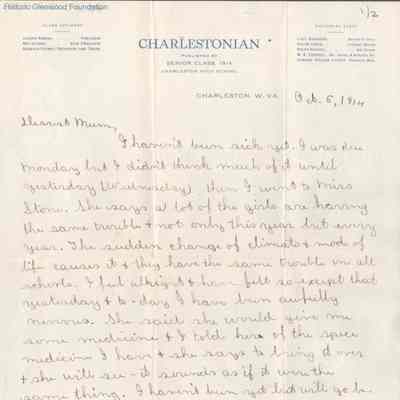 Historic Glenwood Foundation
1/2
CHARLESTONIAN
PUBLISHED BY
SENIOR CLASS 1914
CHARLESTON HIGH SCHOOL
CHARLESTON, W. VA.
Oct. 5, 1914
Dearest Mum,
I haven't been sick yet. I was due
Monday but I didn't think much of it until
yesterday (Wednesday) then I went to Miss
Stone. She says a lot of the girls are having
the same trouble & not only this year but every
year. The sudden change of climate & mode of
life causes it & they have the same trouble in all
schools. I feel alright & have felt so except that
yesterday & to-day I have been awfully
nervous. She said she would give me
some medicine & I told her of the spec
medicine I have & she says to bring it over
& she will see - it sounds as if it were the
same thing. I haven't been yet but will go be